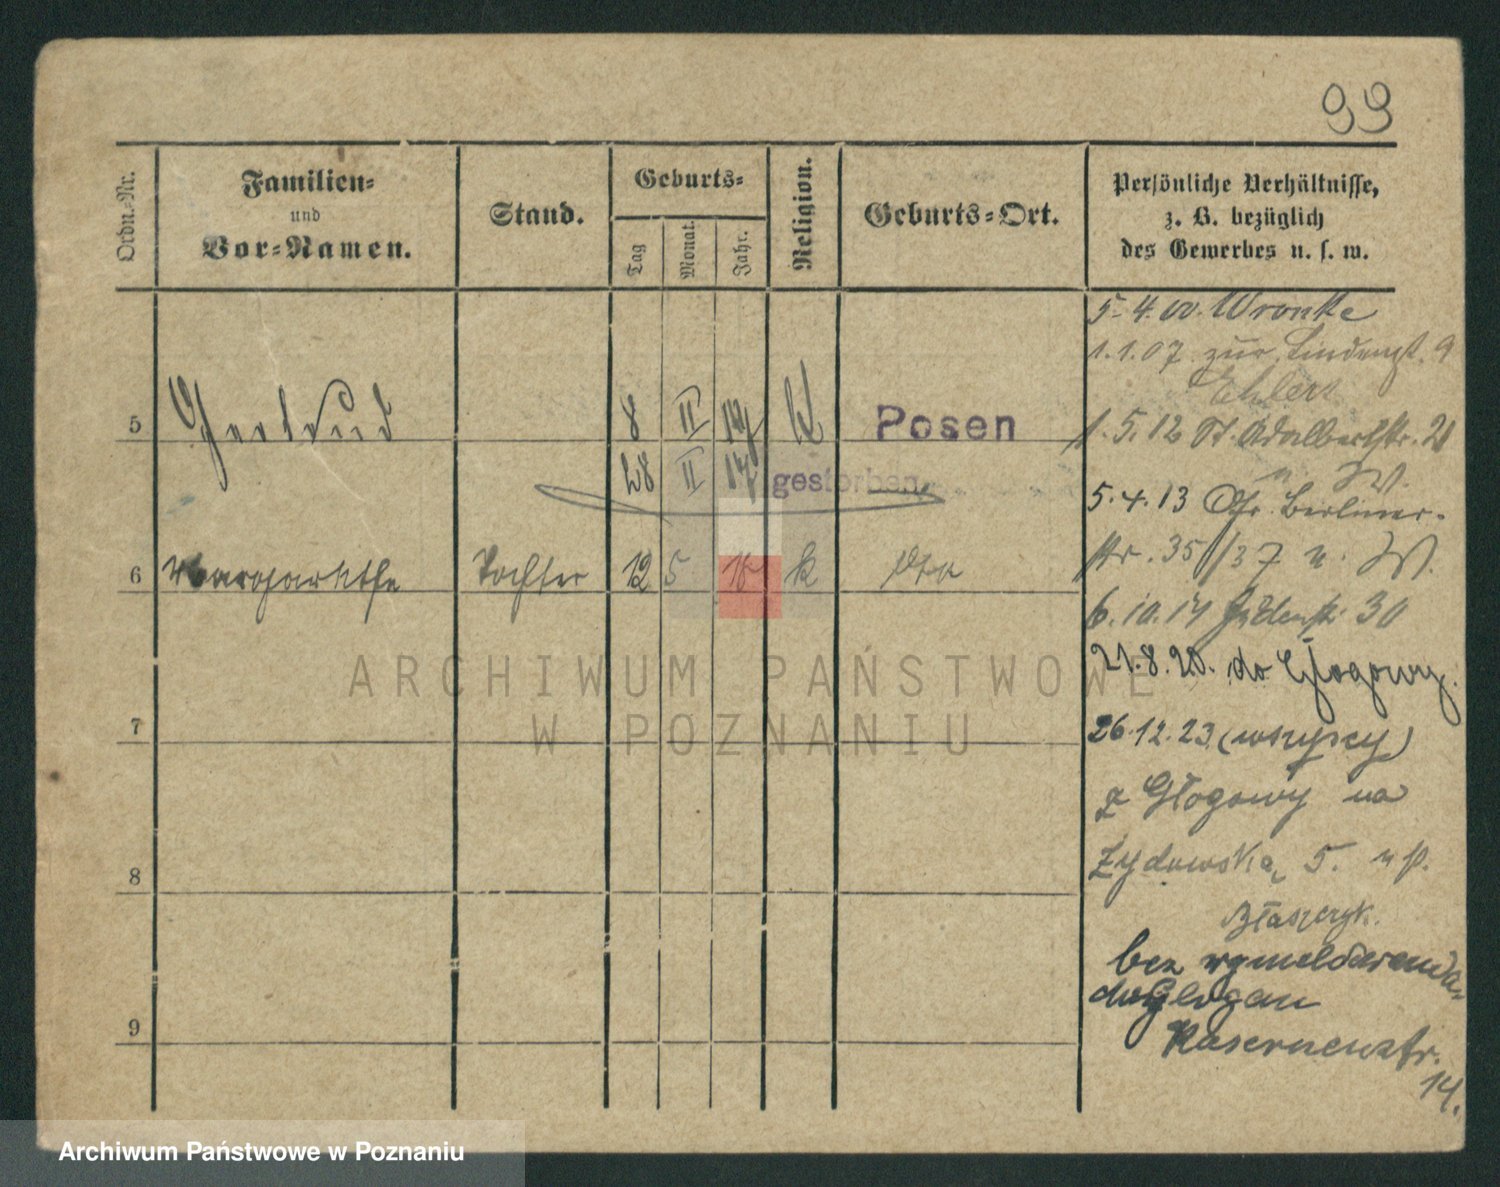 99
Ordn.-Nr.
Familien-
und
Vor-Namen.
Stand.
Geburts-
Tag
Monat.
Jahr.
Religion.
Geburts-Ort.
Persönliche Verhältnisse,
z. B. bezüglich
des Gewerbes u. s. w.
5.4.00. Wronke
1.1.07 zur Lindenst. 9
Ehlert
5 Gertrud 8 II 14 k Posen
1.5.12 St. Adalbertstr. 21
28 II 17 gestorben
u. W.
5.4.13 Chr. Berliner-
str. 35/37 u. W.
6 Margarethe Tochter 12 5 18 k dto
6.10.17 Judenstr. 30
21.8.20. do Głogowy.
7
26.12.23 (wszyscy)
z Głogowy na
8
Żydowska 5. u p.
Błaszczyk.
bez wymeldowania
do Glogau
9
Kasernenstr.
14.
ARCHIWUM PAŃSTWOWE
W POZNANIU
Archiwum Państwowe w Poznaniu